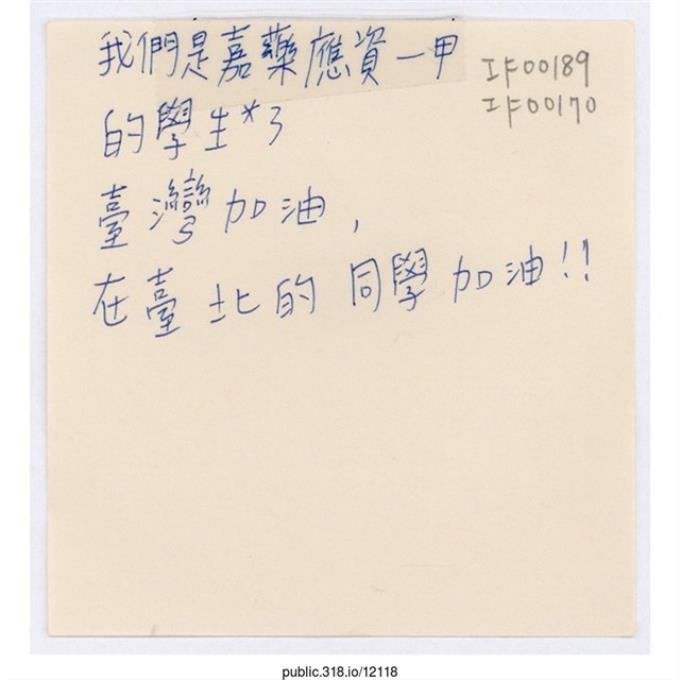 我們是嘉藥應資一甲
IF00189
IF00170
的學生*3
臺灣加油,
在臺北的同學加油!!
public.318.io/12118